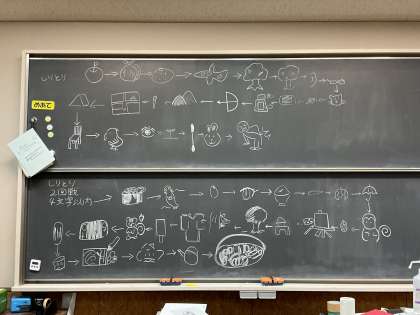 しりとり
めあて
しりとり
2回戦
4文字以内